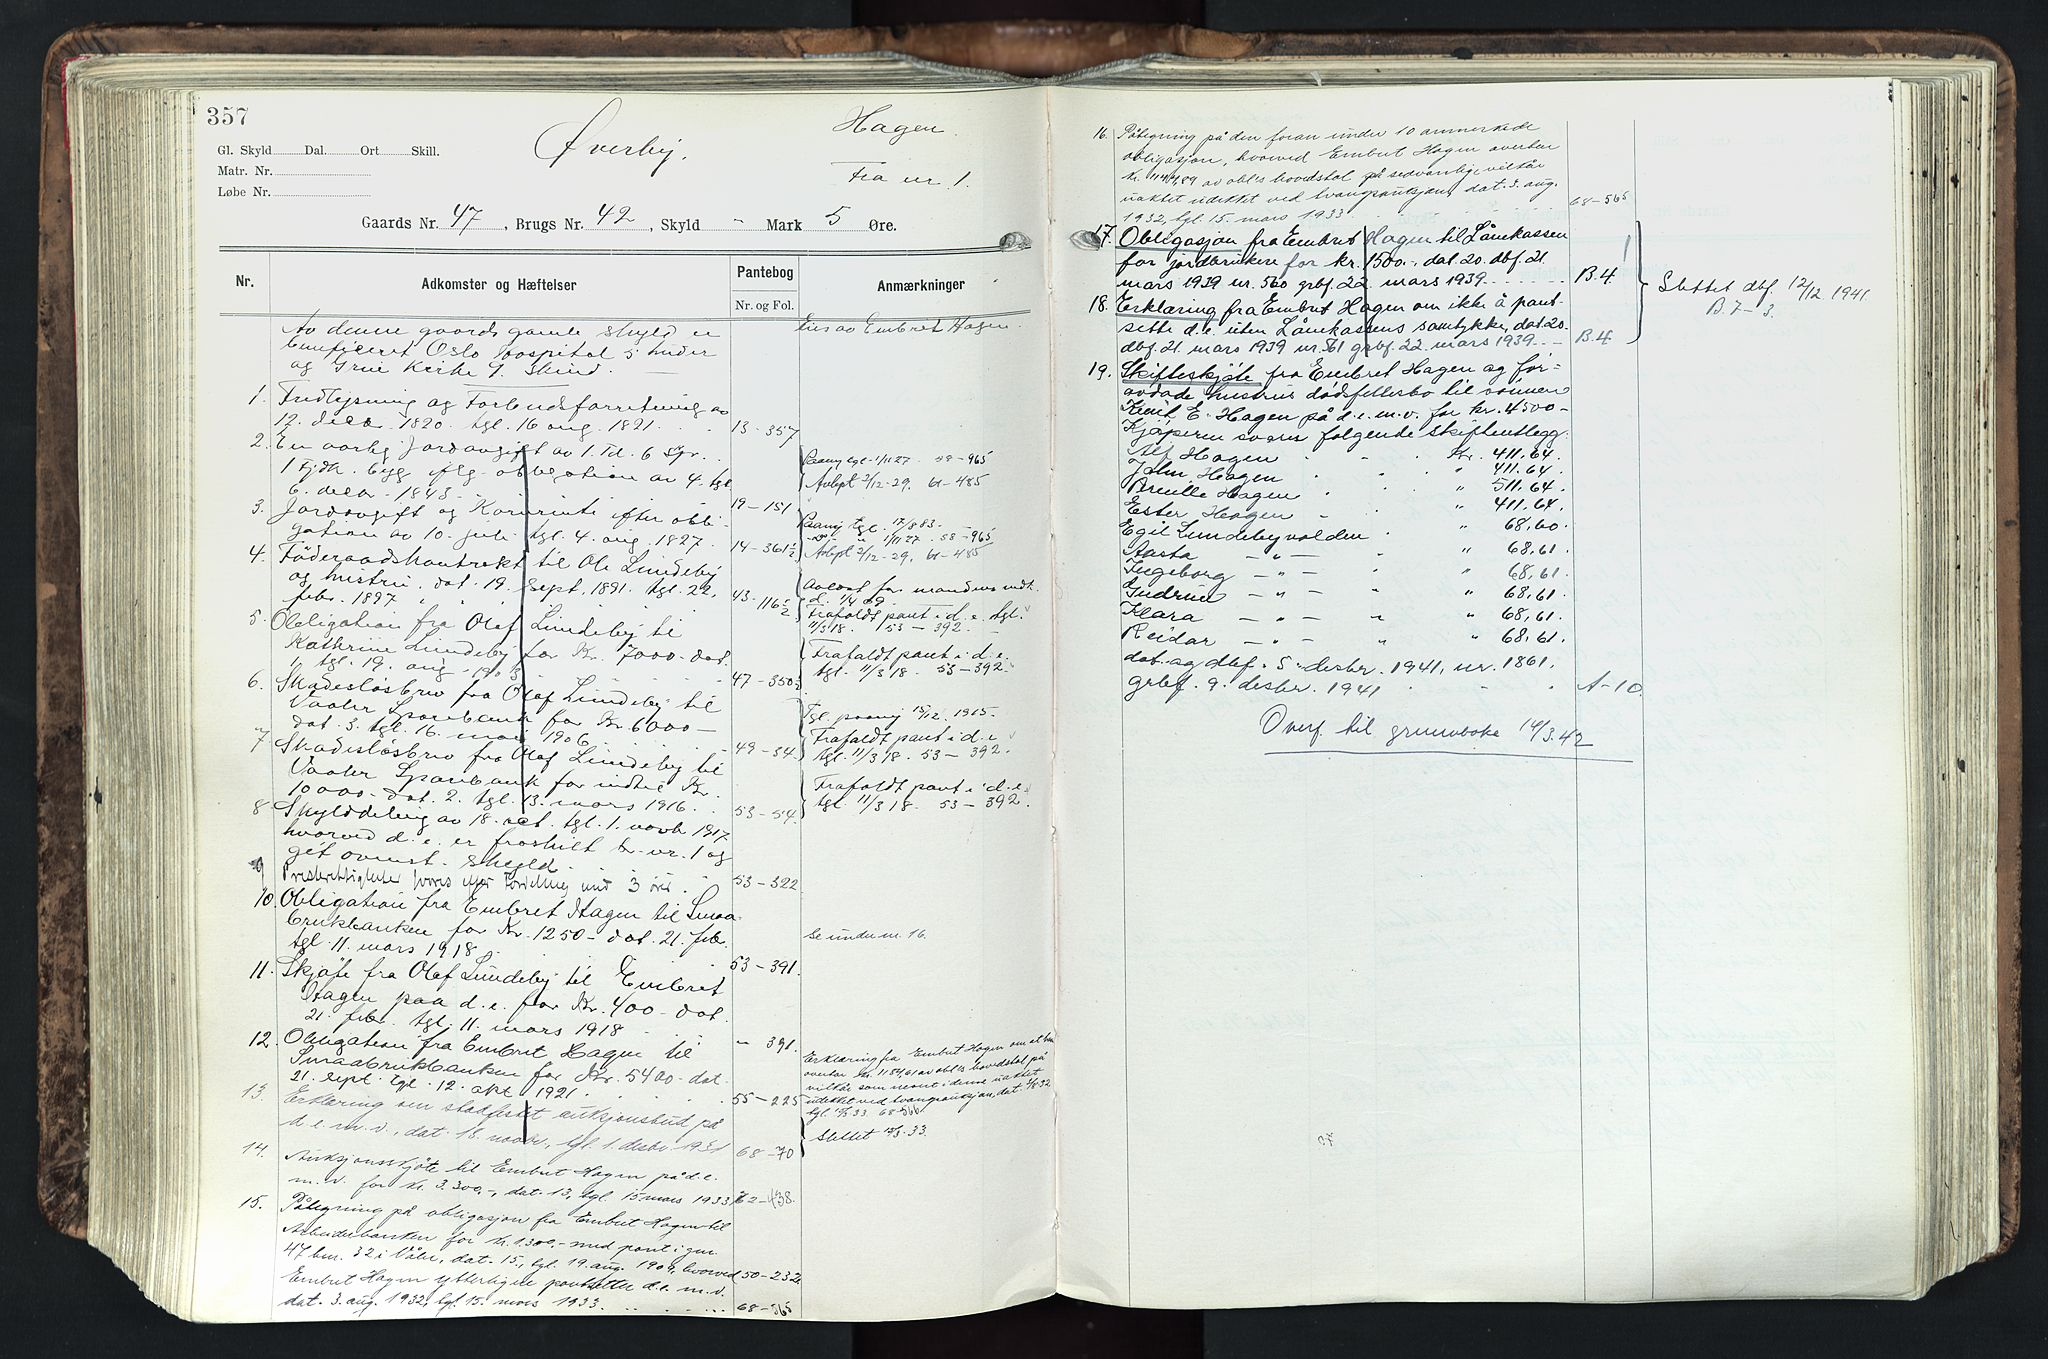 357
Øverby. Hagen.
Gl. Skyld Dal. Ort Skill.
Matr. Nr.
Løbe Nr.
Fra nr 1.
Gaards Nr. 47, Brugs Nr. 42, Skyld - Mark 5 Øre.
Nr. Adkomster og Hæftelser Pantebog Anmærkninger
Nr. og Fol.
Av denne gaards gamle skyld er Eies av Embret Hagen.
beneficeret Oslo hospital 5 huder
og Grue Kirke 9. Skind.
1. Fredlysning og Forbudsforretning av
12. decbr 1820. tgl. 16 aug. 1821. 13-357
2. En aarlig Jordavgift av 1. Td. 6 Spr.
1 Fjdk. byg iflg. obligation av 4. tgl. Paany tgl. 1/11 27 58-965
6. decbr 1843. 19-151 Avlyst 2/12-29. 61-485
3. Jordavgift og Kornrente efter obli-
gation av 10. juli tgl. 4. aug. 1827. 14-361 1/2 Paany tgl. 17/8 83.
1/11 27. 58-965
Avlyst 2/12-29. 61-485
4. Føderaadskontrakt til Ole Lundeby
og hustru. dat. 19. Sept. 1891. tgl. 22.
febr. 1897. 43-116 1/2 Avløst for mandens vedk.
d. 1/4 09.
Frafaldt pant i d.e. tgl.
11/3 18. 53-392.
5. Obligation fra Olaf Lundeby til
Kathrine Lundeby for Kr. 7000- dat.
1. tgl. 19. aug. 47-350 Frafaldt pant i d.e.
tgl. 11/3 18. 53-392
6. Skadesløsbrev fra Olaf Lundeby til
Vaaler Sparebank for Kr. 6000-
dat. 3. tgl. 16. mai 1906 49-34. Tgl. paany 15/12. 1915.
Frafaldt pant i d.e
tgl. 11/3 18. 53-392.
7. Skadesløsbrev fra Olaf Lundeby til
Vaaler Sparebank for indtil Kr.
10000- dat. 2. tgl. 13. mars 1916. 53-54. Frafaldt pant i d.e.
tgl. 11/3 18. 53-392.
8. Skylddeling av 18. oct. tgl. 1. novb. 1917
hvorved d.e. er fraskilt br. nr. 1 og
git ovenst. skyld. 53-322
9 3 øre
10. Obligation fra Embret Hagen til Smaa-
brukbanken for Kr. 1250- dat. 21. febr.
tgl. 11. mars 1918. 53-391. Se under nr. 16.
11. Skjøte fra Olaf Lundeby til Embret
Hagen paa d.e. for Kr. 400- dat.
21. febr. tgl. 11. mars 1918 " 391.
12. Obligation fra Embret Hagen til
Smaabrukbanken for Kr. 5400- dat.
21. sept. tgl. 12. okt 1921 55-225 Erklæring fra Embret Hagen om at han
overtar kr. 1154,61 av obl's hovedstol, på
vilkår som nevnt i denne uaktet
udekket ved tvangsauksjon, dat. 3/8 32
tgl. 15/3 33 68-566
13. Erklæring om stadfestet auksjonsbud på
d.e. m.v., dat. 18. novbr, tgl. 1. desbr 1931 68-70 Slettet 15/3. 33.
14. Auksjonsskjøte til Embret Hagen på d.e.
m.v. for kr. 3.300,-, dat. 13, tgl. 15 mars 1933, 62-438.
15. Påtegning på obligasjon fra Embret Hagen til
Arbeiderbanken for kr. 1300,- med pant i gnr.
47 bnr. 32 i Våler, dat. 15, tgl. 19. aug. 1909, hvorved 50-232
Embret Hagen ytterligere pantsetter d.e. m.v.
dat. 3. aug. 1932, tgl. 15. mars 1933. 68-565
16. Påtegning på den foran under 10 anmerkede
obligasjon, hvorved Embret Hagen overtar
kr. 1144,89 av obl's hovedstol på sedvanlige vilkår
uaktet udekket ved tvangsauksjon, dat. 3. aug.
1932, tgl. 15. mars 1933 68-565
17. Obligasjon fra Embret Hagen til Lånekassen
for jordbrukere for kr. 1500.-, dat. 20. dbf. 21
mars 1939 nr. 560 grbf. 22. mars 1939. B.4 Slettet dbf. 12/12 1941.
B. 7-3.
18. Erklæring fra Embret Hagen om ikke å pant-
sette d.e. uten Lånekassens samtykke, dat. 20.
dbf. 21. mars 1939 nr. 561 grbf. 22. mars 1939. B.4
19. Skifteskjøte fra Embret Hagen og for-
avdøde hustrus dødsfellesbo til sønnen
Knut E. Hagen på d.e. m.v. for kr. 4500-
Kjøperen svarer følgende skifteutlegg:
Alf Hagen Kr. 411.64.
John Hagen " 411.64.
Hagen " 511.64.
Ester Hagen " 411.64.
Egil Lundebyvolden " 68.60.
Aasta - " - " 68,61.
Ingeborg - " - " 68,61.
Gudrun - " - " 68,61.
Klara - " - " 68,61.
Reidar - " - " 68,61.
dat. og dbf. 5. desbr. 1941, nr. 1861,
grbf. 9. desbr. 1941 A-10.
Overf. til grunnboka 14/3.42